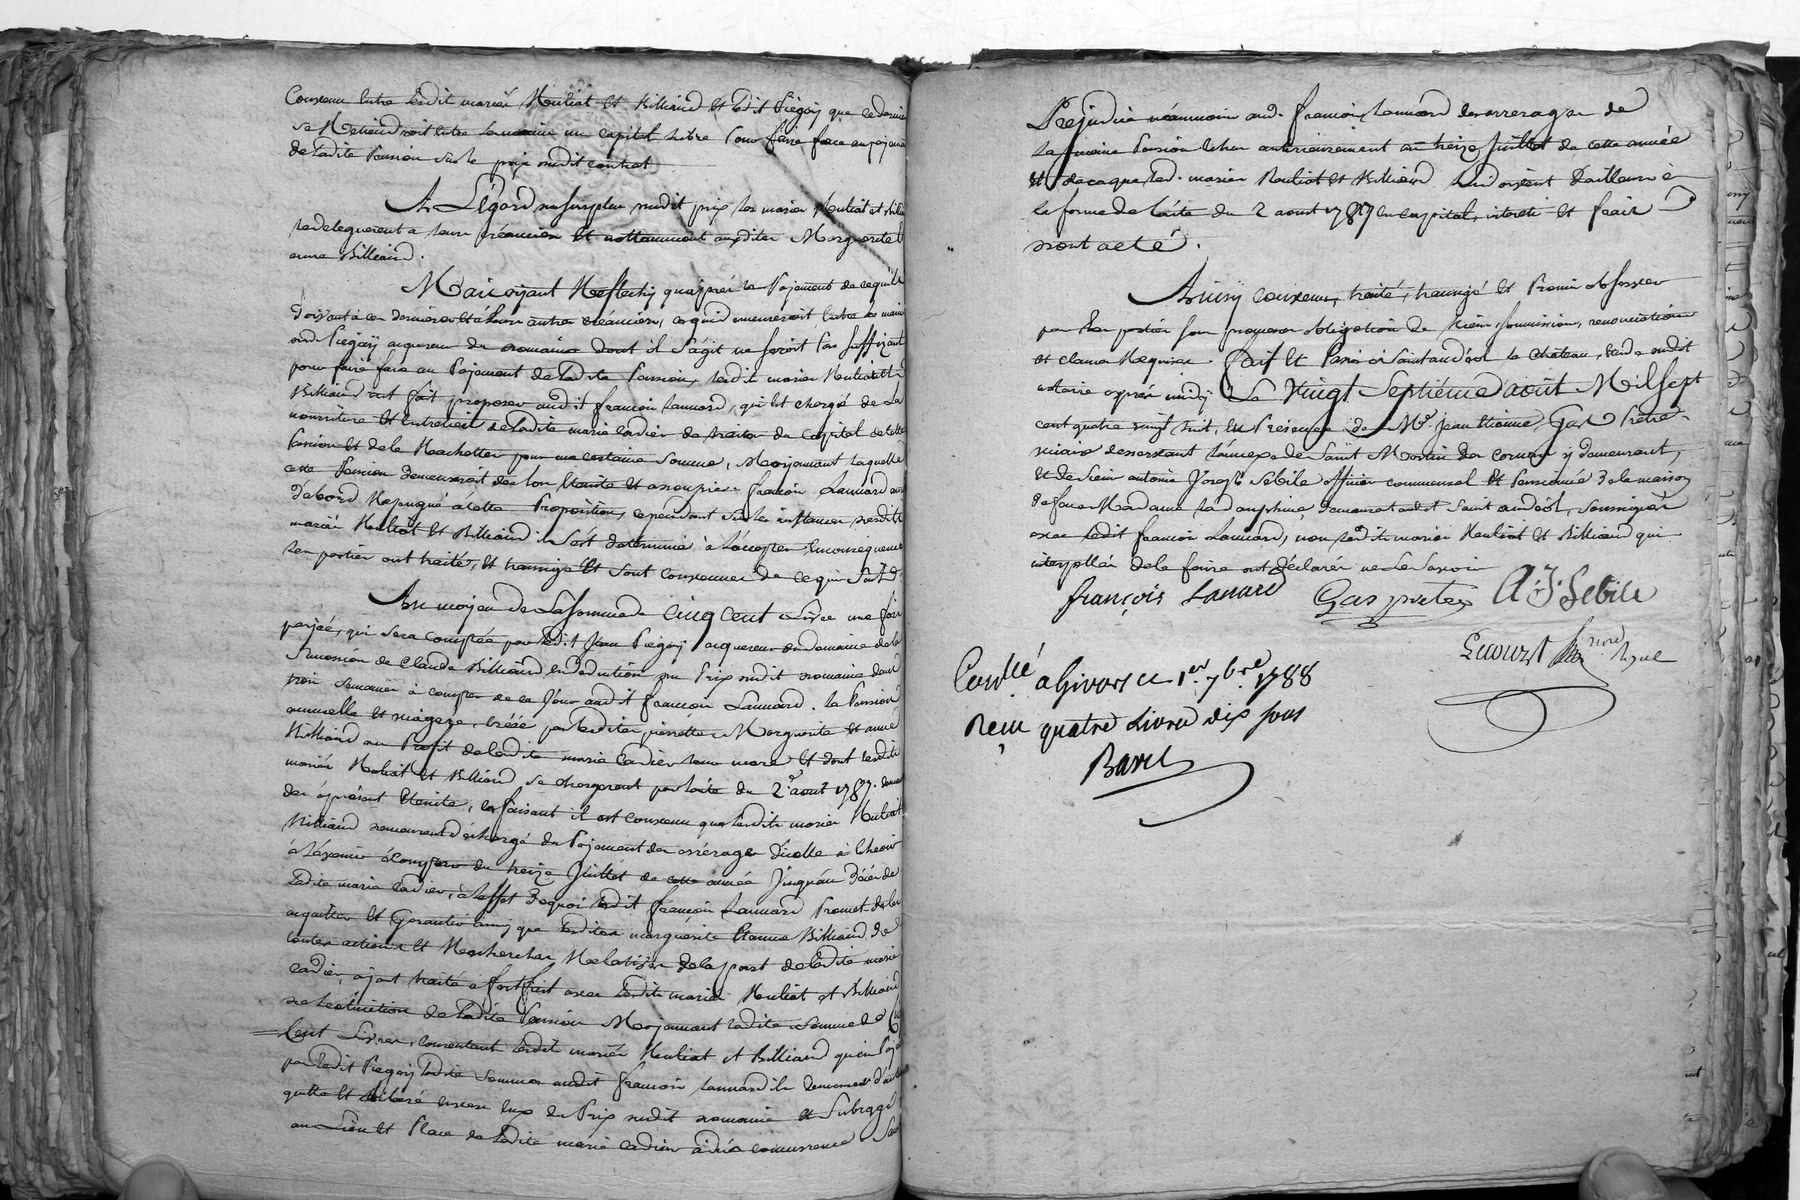 Convenu entre lesdit mariés Neuliat et Billiard et ledit Piegay que ce dernier
se Retiendroit entre les mains un capital libre Pour faire face au payement
de ladite Pension sur le prix dudit contrat
A L'Egard du surplus dudit prix les mariés Neuliat et Billiard
le deleguerent a leurs créanciers et nottamment auxdites Marguerite et
anne Billiard.
Mais ayant Reflechy qu'après le Payement de ce qu'ils
doivent à ces dernieres et à leurs autres créanciers, ce qui demeureroit entre les mains
dud Piegay acquereur du domaine dont il s'agit ne seroit Pas suffizant
pour faire face au Payement de ladite Pension, lesdit mariés Neuliat et
Billiard ont fait proposer audit françois Lannard, qui est chargé de la
nourriture et Entretient de ladite marie Cardier de traiter du capital de cette
Pension et de la Rachetter pour une certaine somme, Moyennant laquelle
cette Pension demeureroit des lors Eteinte et assoupie. françois Lannard ayant
d'abord Repugné à cette Proposition, cependant sur les instances desdits
mariés Neuliat et Billiard il s'est determiné à l'accepter, En consequence
les parties ont traité, et transigé Et sont convenues de ce qui suit
Au moyen de La somme de Cinq cent Livres une fois
payée, qui sera comptée par ledit Jean Piegay acquereur du domaine de la
Succession de Claude Billiard en deduction du Prix dudit domaine dans
trois semaines à compter de ce Jour audit françois Lannard. la Pension
annuelle et viagere, créée par lesdites pierrette, Marguerite et anne
Billiard au Profit de ladite marie Cardier leur mere et dont lesdits
mariés Neuliat et Billiard se chargerent par l'acte du 2e. aout 1787. demeure
des àpresent Eteinte, ce faisant il est convenu que lesdits mariés Neuliat
Billiard demeurent déchargé du Payement des arrérages d'icelle à Echeoir
à l'avenir à compter du treize Juillet de cette année Jusqu'au déces de
ladite marie Cardier, à l'effet de quoi ledit françois Lannard Promet de les
acquitter et Garantir ainsy que lesdites marguerite Et anne Billiard de
toutes actions et Recherches Relatives de la part de ladite marie
Cardier, ayant traité a forfait avec lesdits mariés Neuliat et Billiard
de l'extinction de ladite Pension Moyennant ladite somme de Cinq
Cent Livres, consentant lesdit mariés Neuliat et Billiard qu'en Payant
par ledit Piegay ladite somme audit françois Lannard il demeure d'autant
quitte et Liberé envers eux du Prix dudit domaine et Subrogé
au Lieu et Place de ladite marie Cardier à düe concurrence Sans
Prejudice néanmoins aud. françois Lannard des arrerages de
la meme Pension Echus anterieurement au treize Juillet de cette année
et de ce que led. mariés Neuliat et Billiard lui doivent d'ailleurs à
la forme de l'acte du 2 aout 1787 en capital, interets et frais
dont acte.
Ainsy convenu, traité, transigé et Promis observer
par les parties sous pareuses obligation de biens, soumission, renonciation
et clause Requise. Fait et Passé à Saint andéol le Chateau, Etude dudit
notaire après midy Le Vingt Septiéme aout Mil Sept
cent quatre vingt huit, En Presence de Mr. Jean Etienne Gas Prêtre
vicaire desservant l'annexe de Saint Martin de Cornas y demeurant,
et de Sieur antoine Joseph Sebile officier commensal et Pensionné de la maison
de feue Madame la dauphine, demeurant audit Saint andéol, soussignés
avec ledit françois Lannard, non lesdits mariés Neuliat et Billiard qui
interpellés de le faire ont déclarés ne le savoir
françois Lanard Gas prêtre A. J. Sebile
Conllé a Givors ce 1er. 7bre. 1788
Reçu quatre Livres dix sous